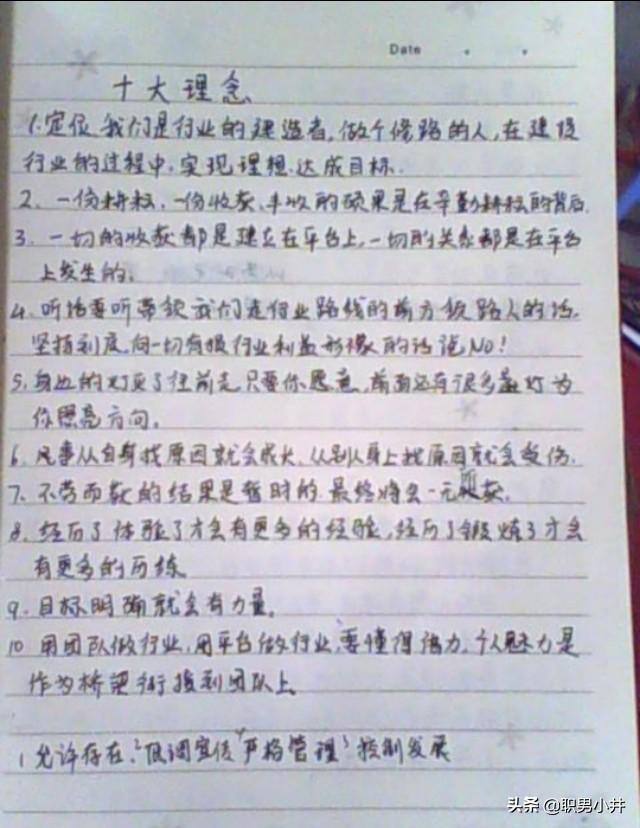 Date
十大理念
1.定位 我们是行业的建造者,做个修路的人,在建设
行业的过程中.实现理想.达成目标.
2. 一份耕耘.一份收获.丰收的硕果是在辛勤耕耘的背后.
3. 一切的收获都是建立在平台上,一切的关系都是在平台
上发生的。
4. 听话要听带领我们走行业路线的前方领路人的话.
坚持到底,向一切有损行业利益形像的话说NO!
5. 身边的灯灭了往前走.只要你愿意,前面还有很多盏灯为
你照亮方向。
6. 凡事从自身找原因就会成长.从别人身上找原因就会受伤.
7. 不劳而获的结果是暂时的.最终将会一无所获.
8. 经历了体验了才会有更多的经验,经历了锻炼了才会
有更多的历练.
9. 目标明确就会有力量.
10 用团队做行业,用平台做行业,要懂得借力.个人魅力是
作为桥梁 到团队上.
1 允许存在、"低调宣传"严格管理"控制发展
头条 @职男小井